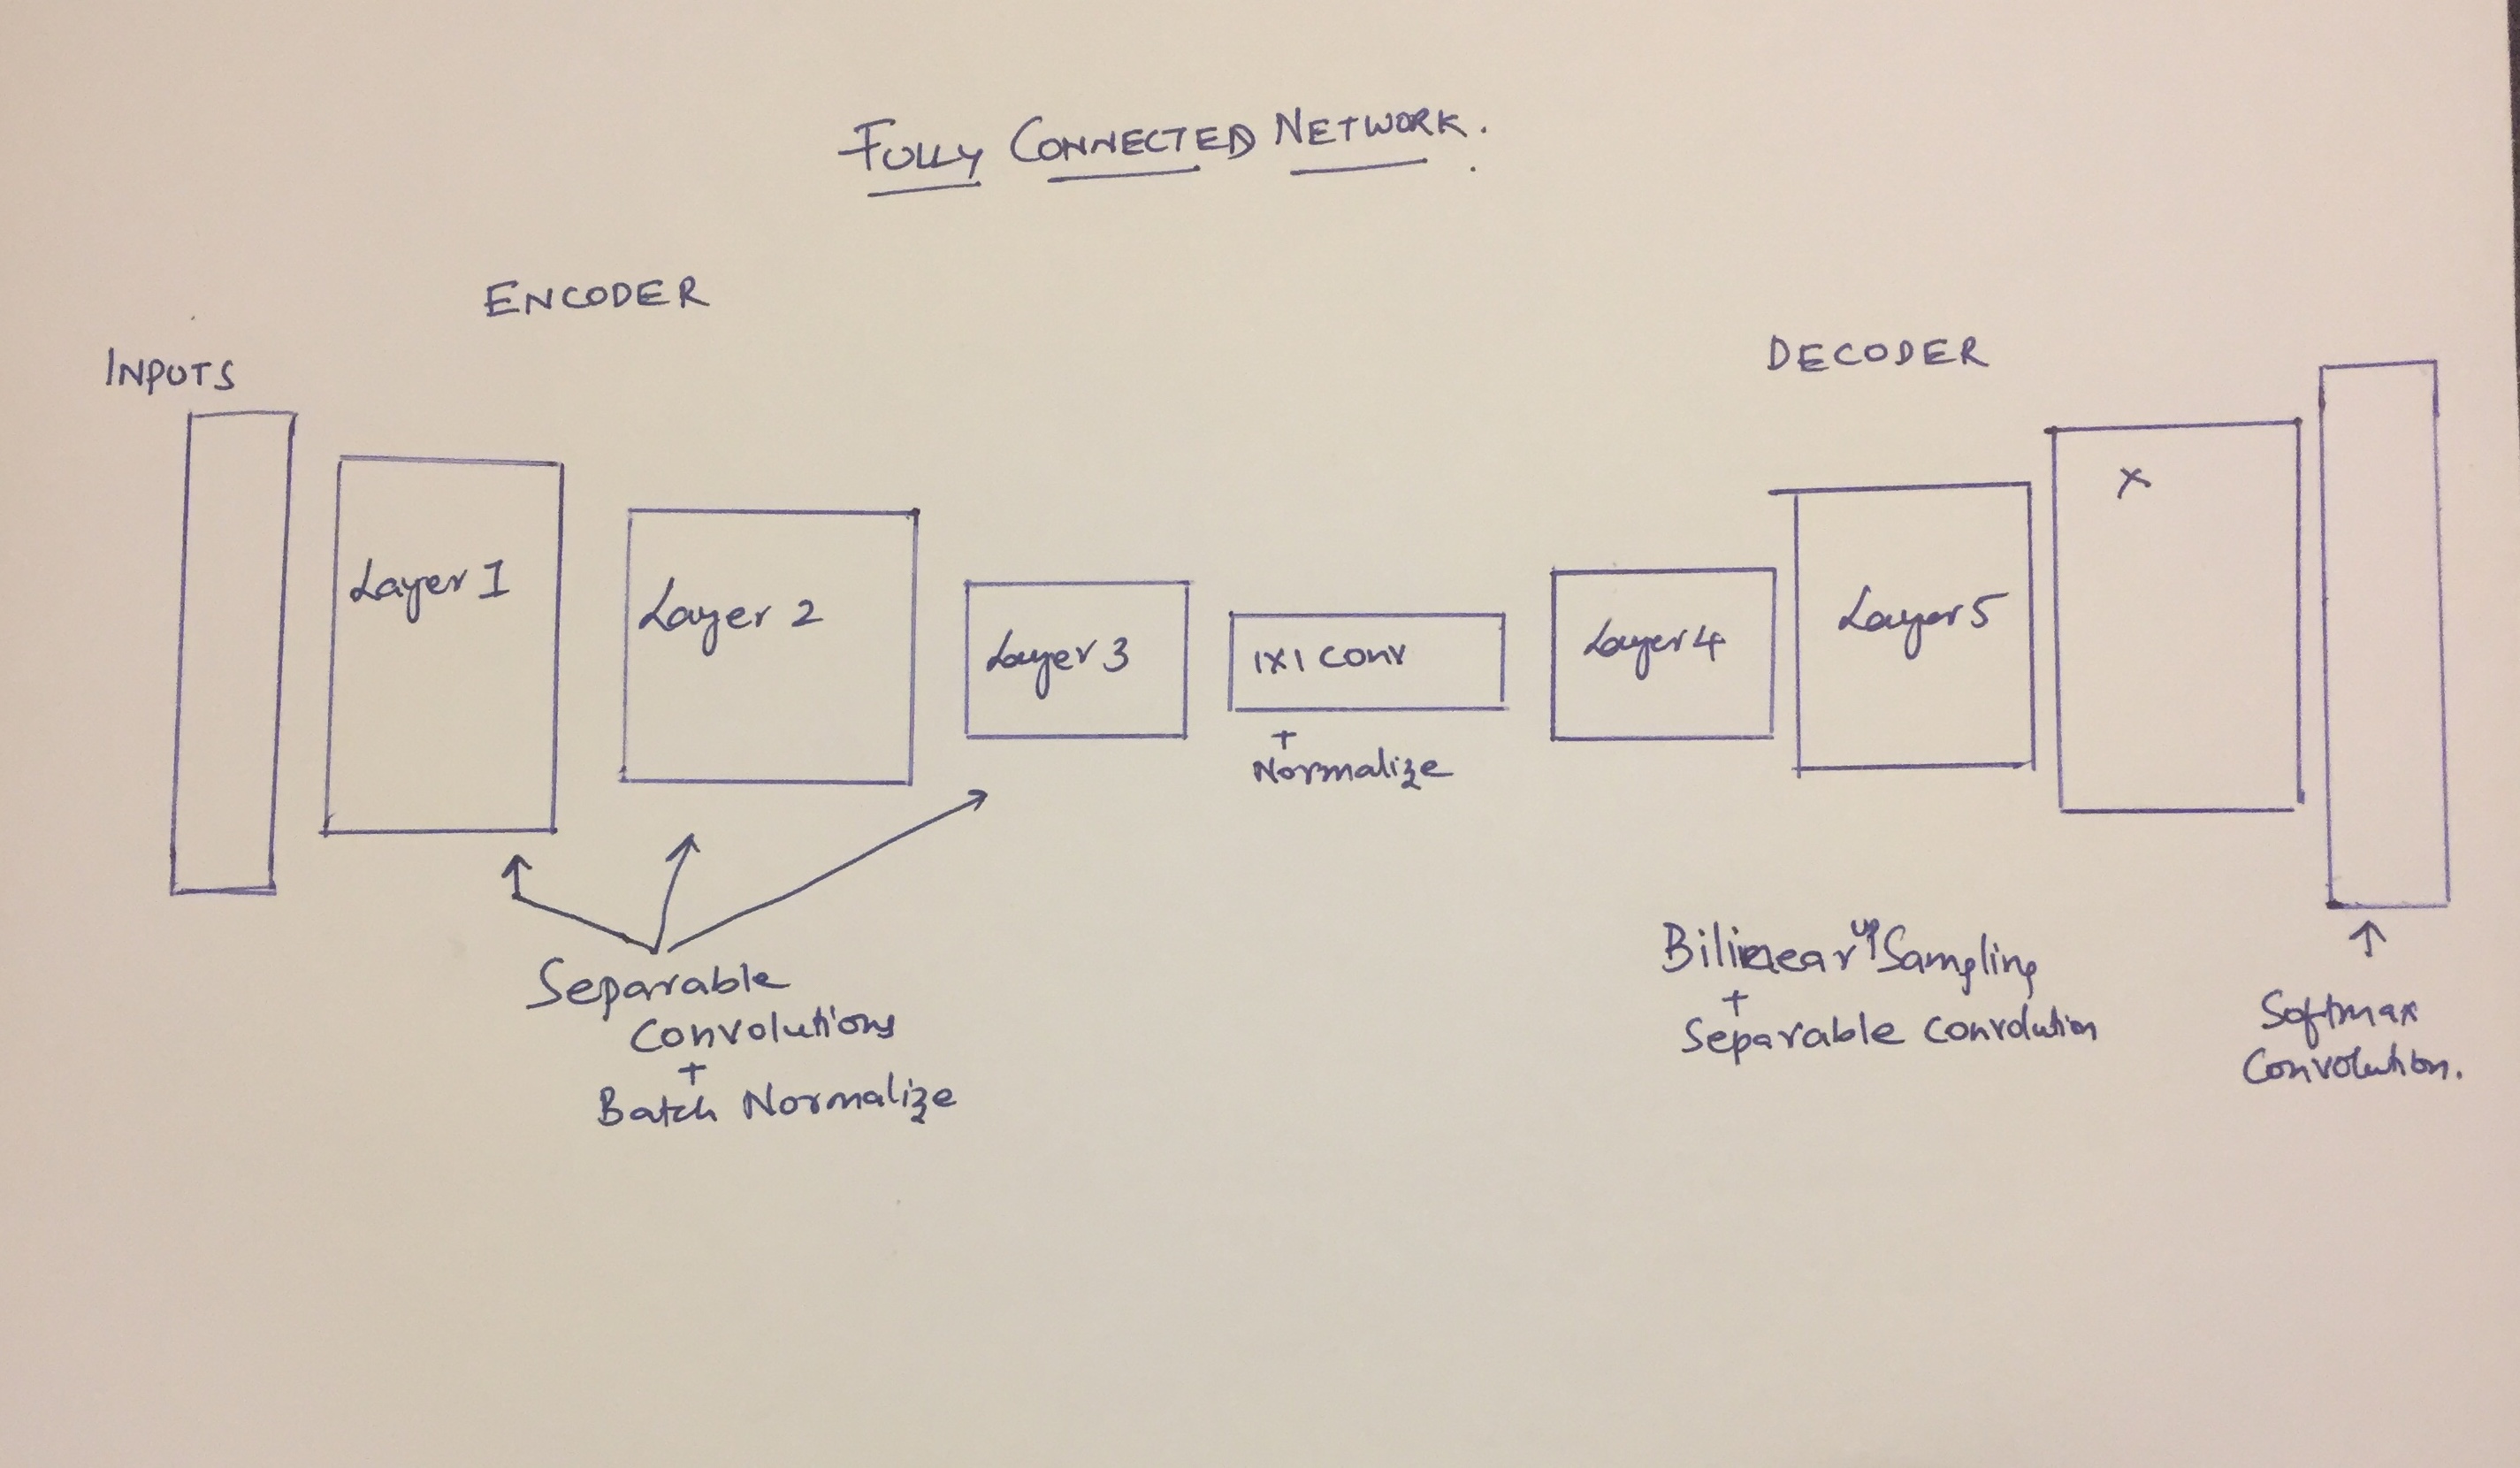 FULLY CONNECTED NETWORK.
ENCODER
DECODER
INPUTS
Layer 1
Layer 2
Layer 3
1X1 conv
+
Normalize
Layer 4
Layer 5
x
Separable
Convolutions
+
Batch Normalize
Bilinear up Sampling
+
Separable convolution
Softmax
Convolution.